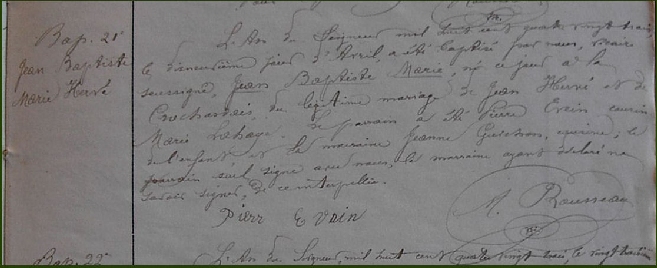 Bap. 21e
Jean Baptiste
Marie Hervé
L'An du Seigneur mil huit cent quatre vingt trois,
le jour d'Avril a été baptisé par nous, vicaire
soussigné, Jean Baptiste Marie, né ce jour à la
du légitime mariage de Jean Hervé et de
Marie Lehaye. Le parrain a été Pierre Evain cousin
de l'enfant, et la marraine Jeanne cousine; le
parrain seul signe avec nous, la marraine ayant déclaré ne
savoir signer, de ce interpellée.
Pierr Evain
M. Rousseau
vic.
Bap. 22e
L'An du Seigneur, mil huit cent quatre vingt trois, le vingt trois